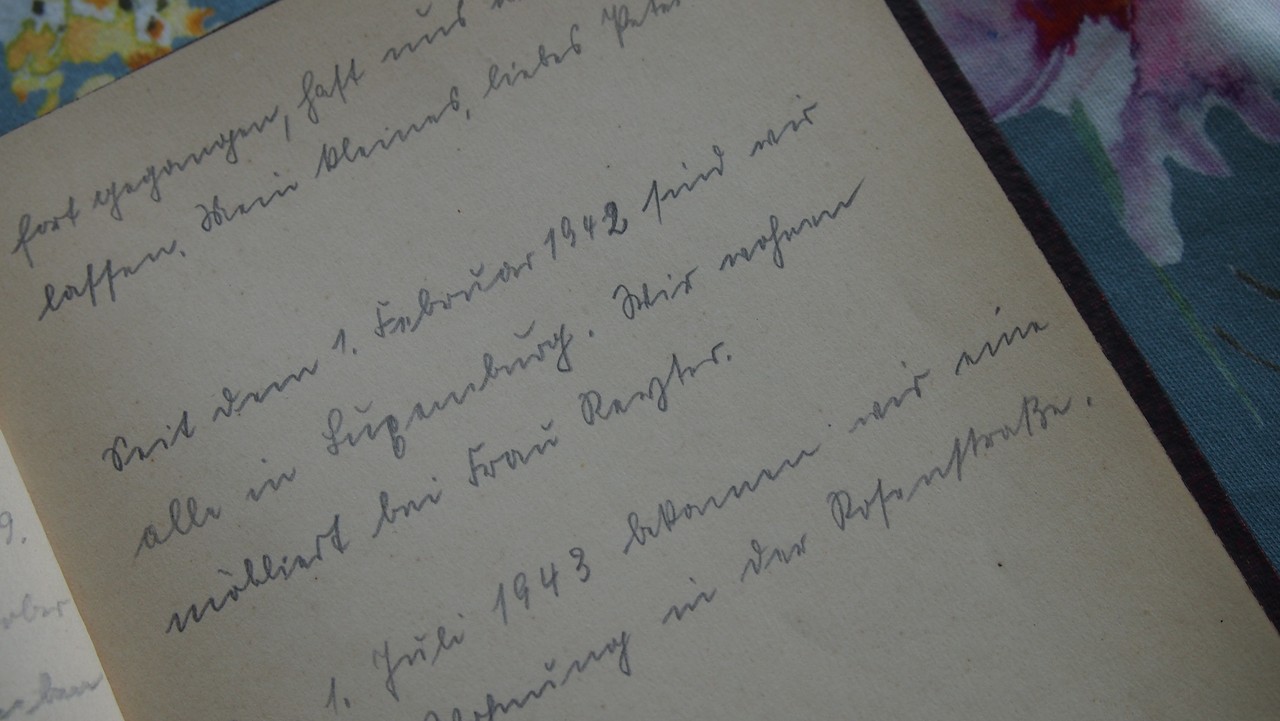 fort gegangen, hast uns
lassen. Mein kleines, liebes Peter
Seit dem 1. Februar 1942 sind wir
alle in Luxemburg. Wir wohnen
möbliert bei Frau
1. Juli 1943 bekommen wir eine
Wohnung in der Rosenstraße.
9.